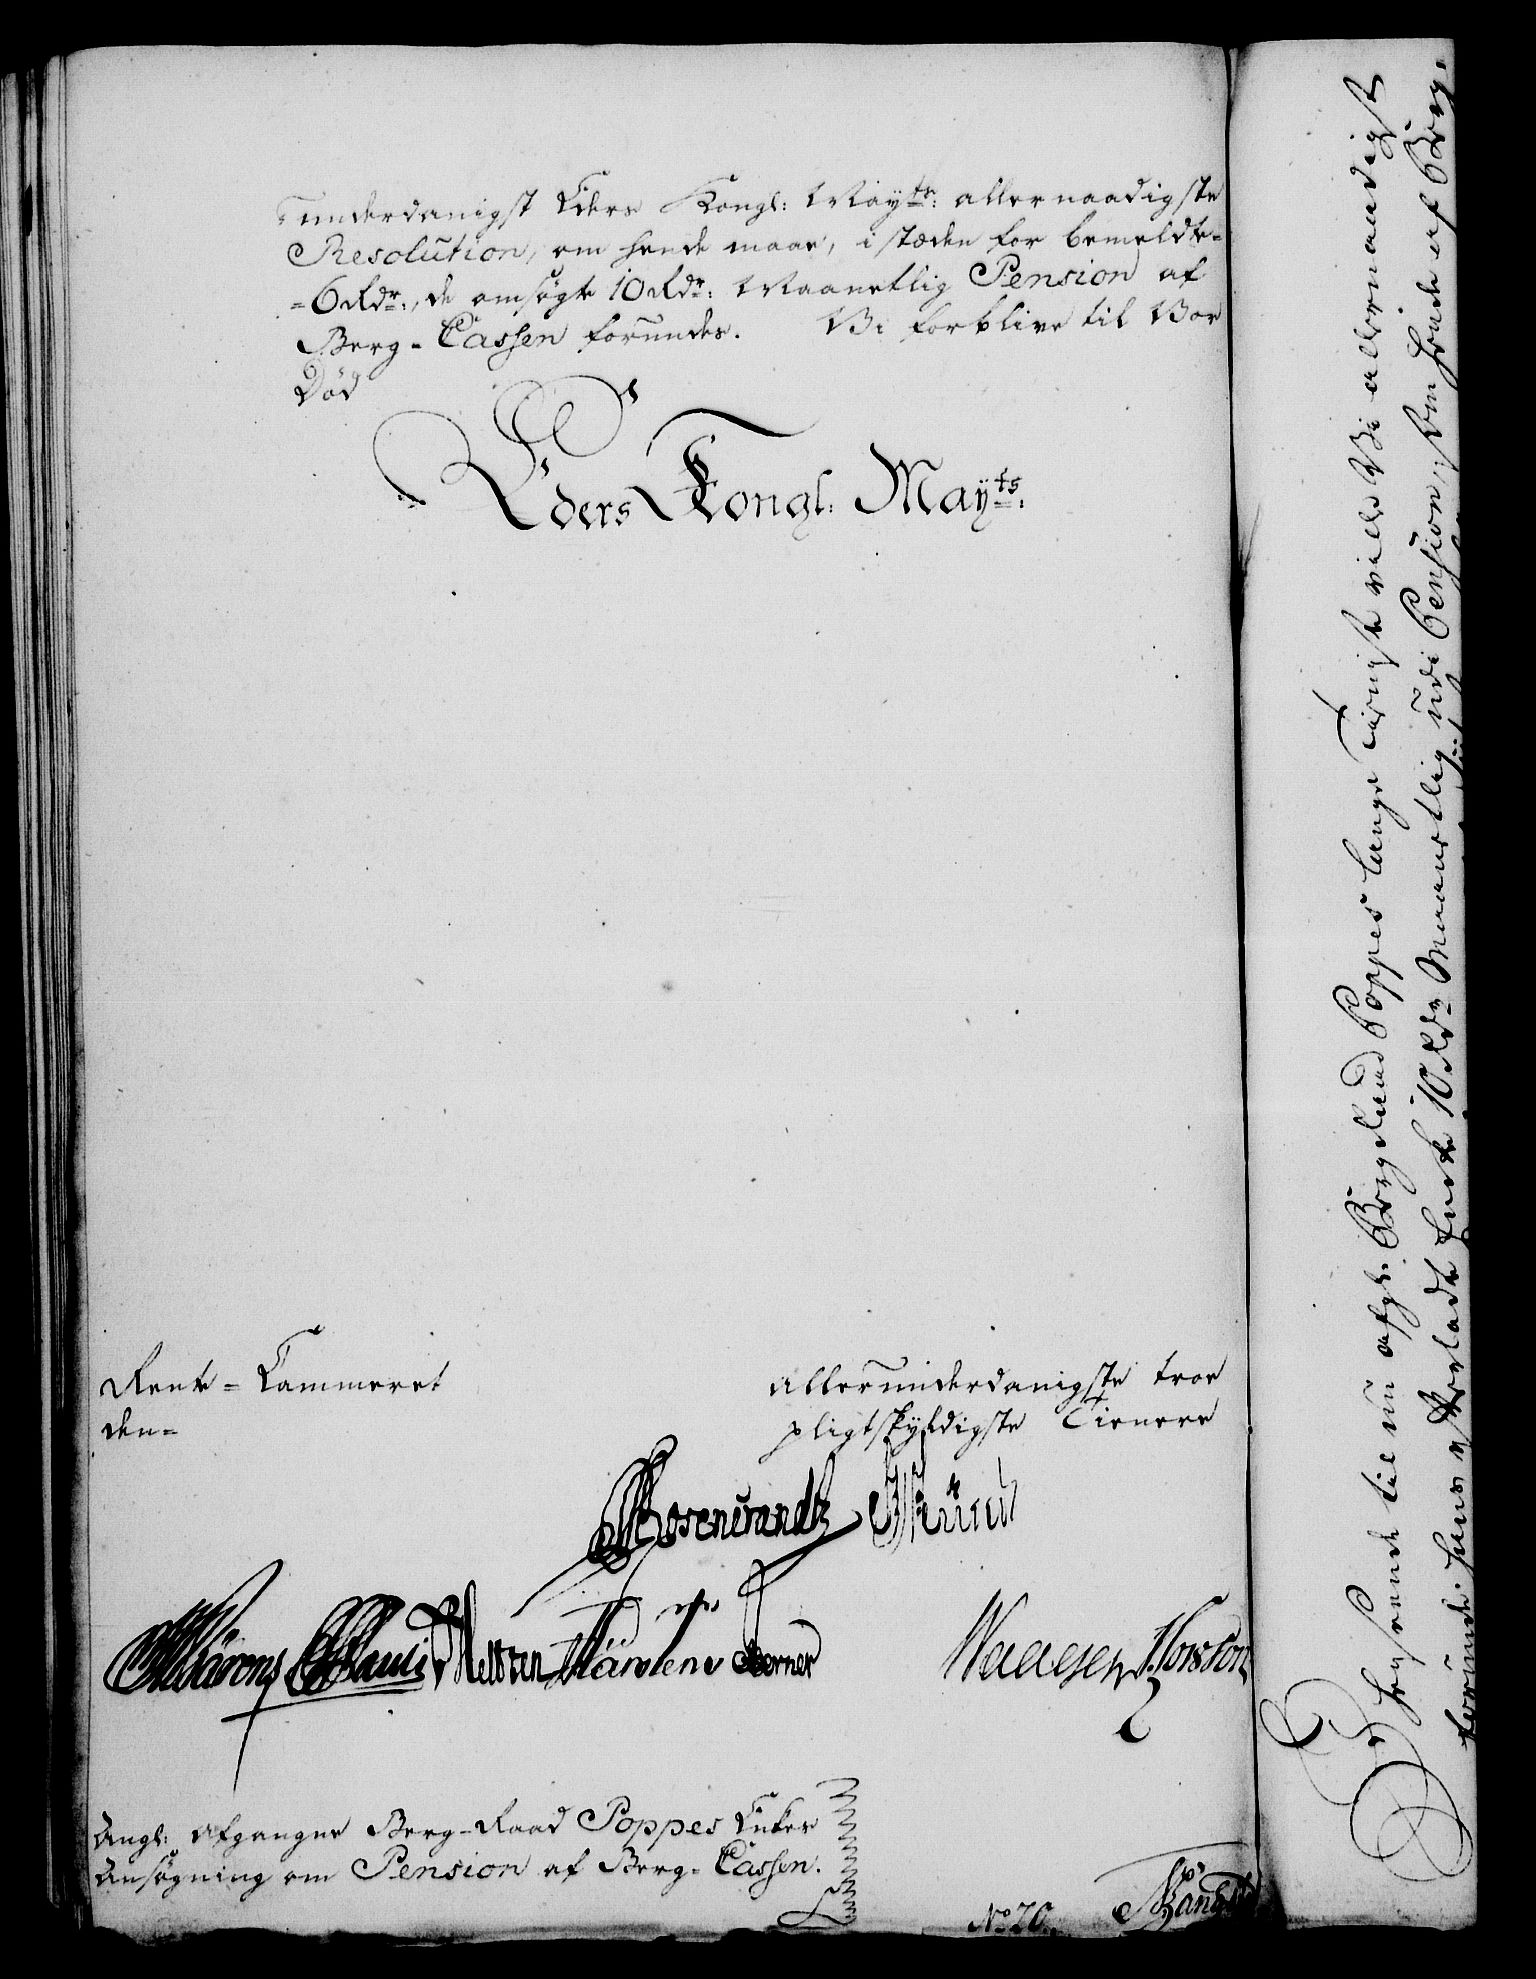 underdanigst Eders Kongl: Mayts: allernaadigste
Resolution, om hende maae, i stæden for bemeldte
6 Rdr:, de ansøgte 10 Rdr: Maanetlig Pension af
Berg-Cassen forundes. Vi forblive til Vor
Død
Eders Kongl: Mayts:
Rente-Cammeret
den-
allerunderdanigste troe
pligtskyldigste Tienere
Rosencrandtz
Berner
Angl: afgangne Berg-Raad Poppes Enkes
Ansøgning om Pension af Berg-Cassen.
No 70.
I Henseende til nu afg: Bergraad Poppes lange Tieniste ville Vi allernaadigst
hans efterladte Encke 10 Rdr Maanetlig udi Pension, som hende af Berg-